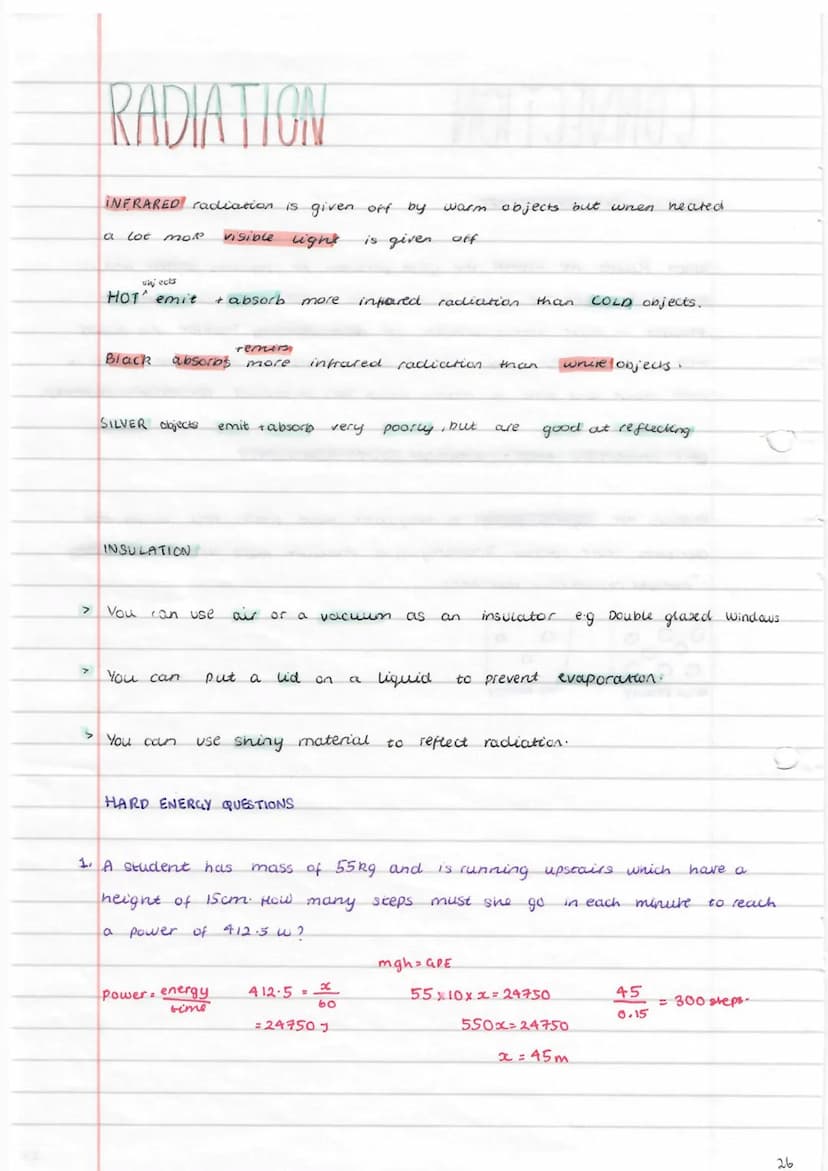 RADIATION
INFRARED radiation is given off by warm objects but when heated
a lot more visible light is given off
objects
HOT ^ emit + absorb more infrared radiation than COLD objects.
+emits
Black absorbs more infrared radiation than white objects.
SILVER objects emit + absorb very poorly, but are good at reflecting
INSULATION
> You can use air or a vacuum as an insulator e.g Double glazed windows
> You can put a lid on a liquid to prevent evaporation.
> You can use shiny material to reflect radiation.
HARD ENERGY QUESTIONS
1. A student has mass of 55kg and is running upstairs which have a
height of 15cm. How many steps must she go in each minute to reach
a power of 412.5 W?
mgh = GPE
power = energy/time 412.5 = x/60 55 x 10 x x = 24750 45/0.15 = 300 steps.
= 24750 J 550x = 24750
x = 45m
26